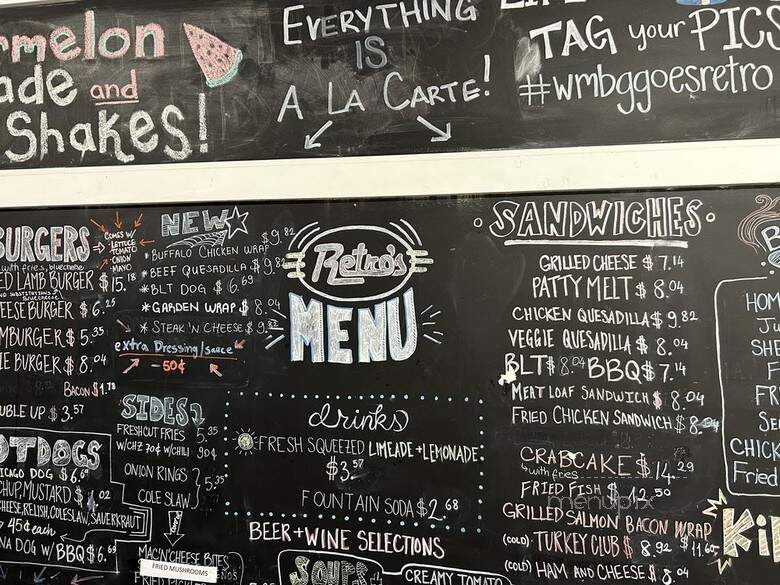 rmelon
ade and
Shakes!
EVERYTHING
IS
A LA CARTE!
TAG your PICS
#wmbggoesretro
BURGERS
COMES W/
LETTUCE
TOMATO
ONION
MAYO
with fries, bluecheese
ED LAMB BURGER $15.18
EESEBURGER $6.25
MBURGER $5.35
IE BURGER $8.04
BACON $1.78
UBLE UP $3.57
OTDOGS
ICAGO DOG $6.
CHUP, MUSTARD $ .02
CHEESE, RELISH, COLESLAW, SAUERKRAUT
45¢ each
NA DOG W/ BBQ $6.69
NEW
* BUFFALO CHICKEN WRAP $9.82
* BEEF QUESADILLA $9.82
* BLT DOG $6.69
* GARDEN WRAP $8.04
* STEAK 'N CHEESE $9.82
extra Dressing/sauce
- 50¢
SIDES
FRESHCUT FRIES 5.35
W/CHZ 70¢ W/CHILI 90¢
ONION RINGS
COLE SLAW
5.35
MAC'N'CHEESE BITES
FRIED MUSHROOMS
Retro's
MENU
drinks
FRESH SQUEEZED LIMEADE + LEMONADE
$3.57
FOUNTAIN SODA $2.68
BEER + WINE SELECTIONS
SOUPS
CREAMY TOMATO
SANDWICHES
GRILLED CHEESE $7.14
PATTY MELT $8.04
CHICKEN QUESADILLA $9.82
VEGGIE QUESADILLA $8.04
BLT $8.04 BBQ $7.14
MEATLOAF SANDWICH $8.04
FRIED CHICKEN SANDWICH $8.04
CRABCAKE $14.29
with fries
FRIED FISH $12.50
GRILLED SALMON BACON WRAP
$11.60
(COLD) TURKEY CLUB $8.92
(COLD) HAM AND CHEESE $8.04
menupix
HOM
SHE
FR
CHICK
Fried
Ki